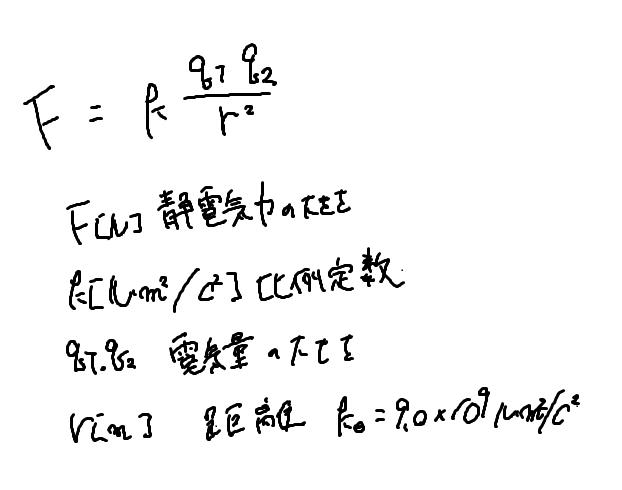 F = k q₁ q₂ / r²
F[N] 静電気力の大きさ
k[N・m²/C²] 比例定数
q₁.q₂ 電気量の大きさ
r[m] 距離 k₀ = 9.0×10⁹ N・m²/C²